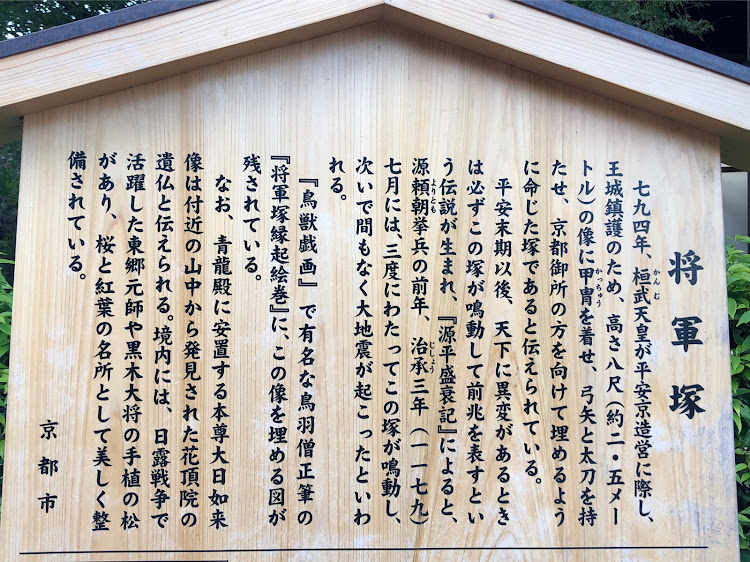 将軍塚
七九四年、桓武天皇が平安京造営に際し、
王城鎮護のため、高さ八尺（約二・五メー
トル）の像に甲冑を着せ、弓矢と太刀を持
たせ、京都御所の方を向けて埋めるよう
に命じた塚であると伝えられている。
平安末期以後、天下に異変があるとき
は必ずこの塚が鳴動して前兆を表すとい
う伝説が生まれ、『源平盛衰記』によると、
源頼朝挙兵の前年、治承三年（一一七九）
七月には、三度にわたってこの塚が鳴動し、
次いで間もなく大地震が起こったといわ
れる。
『鳥獣戯画』で有名な鳥羽僧正筆の
『将軍塚縁起絵巻』に、この像を埋める図が
残されている。
なお、青龍殿に安置する本尊大日如来
像は付近の山中から発見された花頂院の
遺仏と伝えられる。境内には、日露戦争で
活躍した東郷元師や黒木大将の手植の松
があり、桜と紅葉の名所として美しく整
備されている。
京都市
かんむ
かっちゅう
よりとも
じしょう